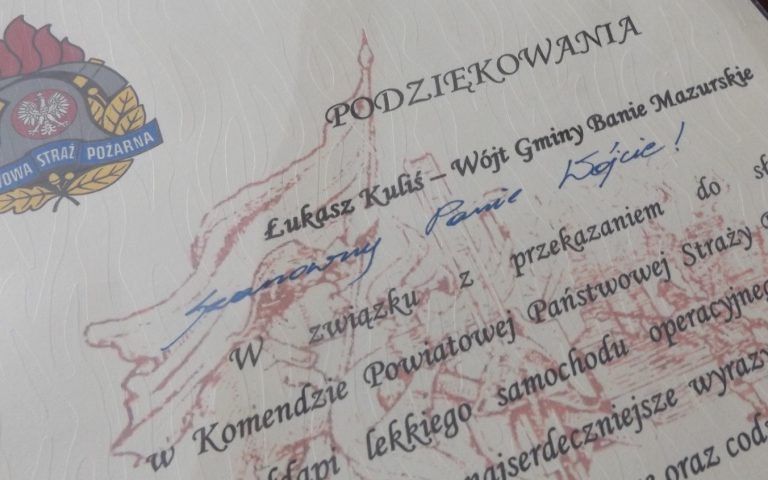 STRAŻ POŻARNA
PODZIĘKOWANIA
Łukasz Kuliś – Wójt Gminy Banie Mazurskie
Szanowny Panie Wójcie!
W związku z przekazaniem do
w Komendzie Powiatowej Państwowej Straży
lekkiego samochodu operacyjneg
najserdeczniejsze wyrazy
oraz cod